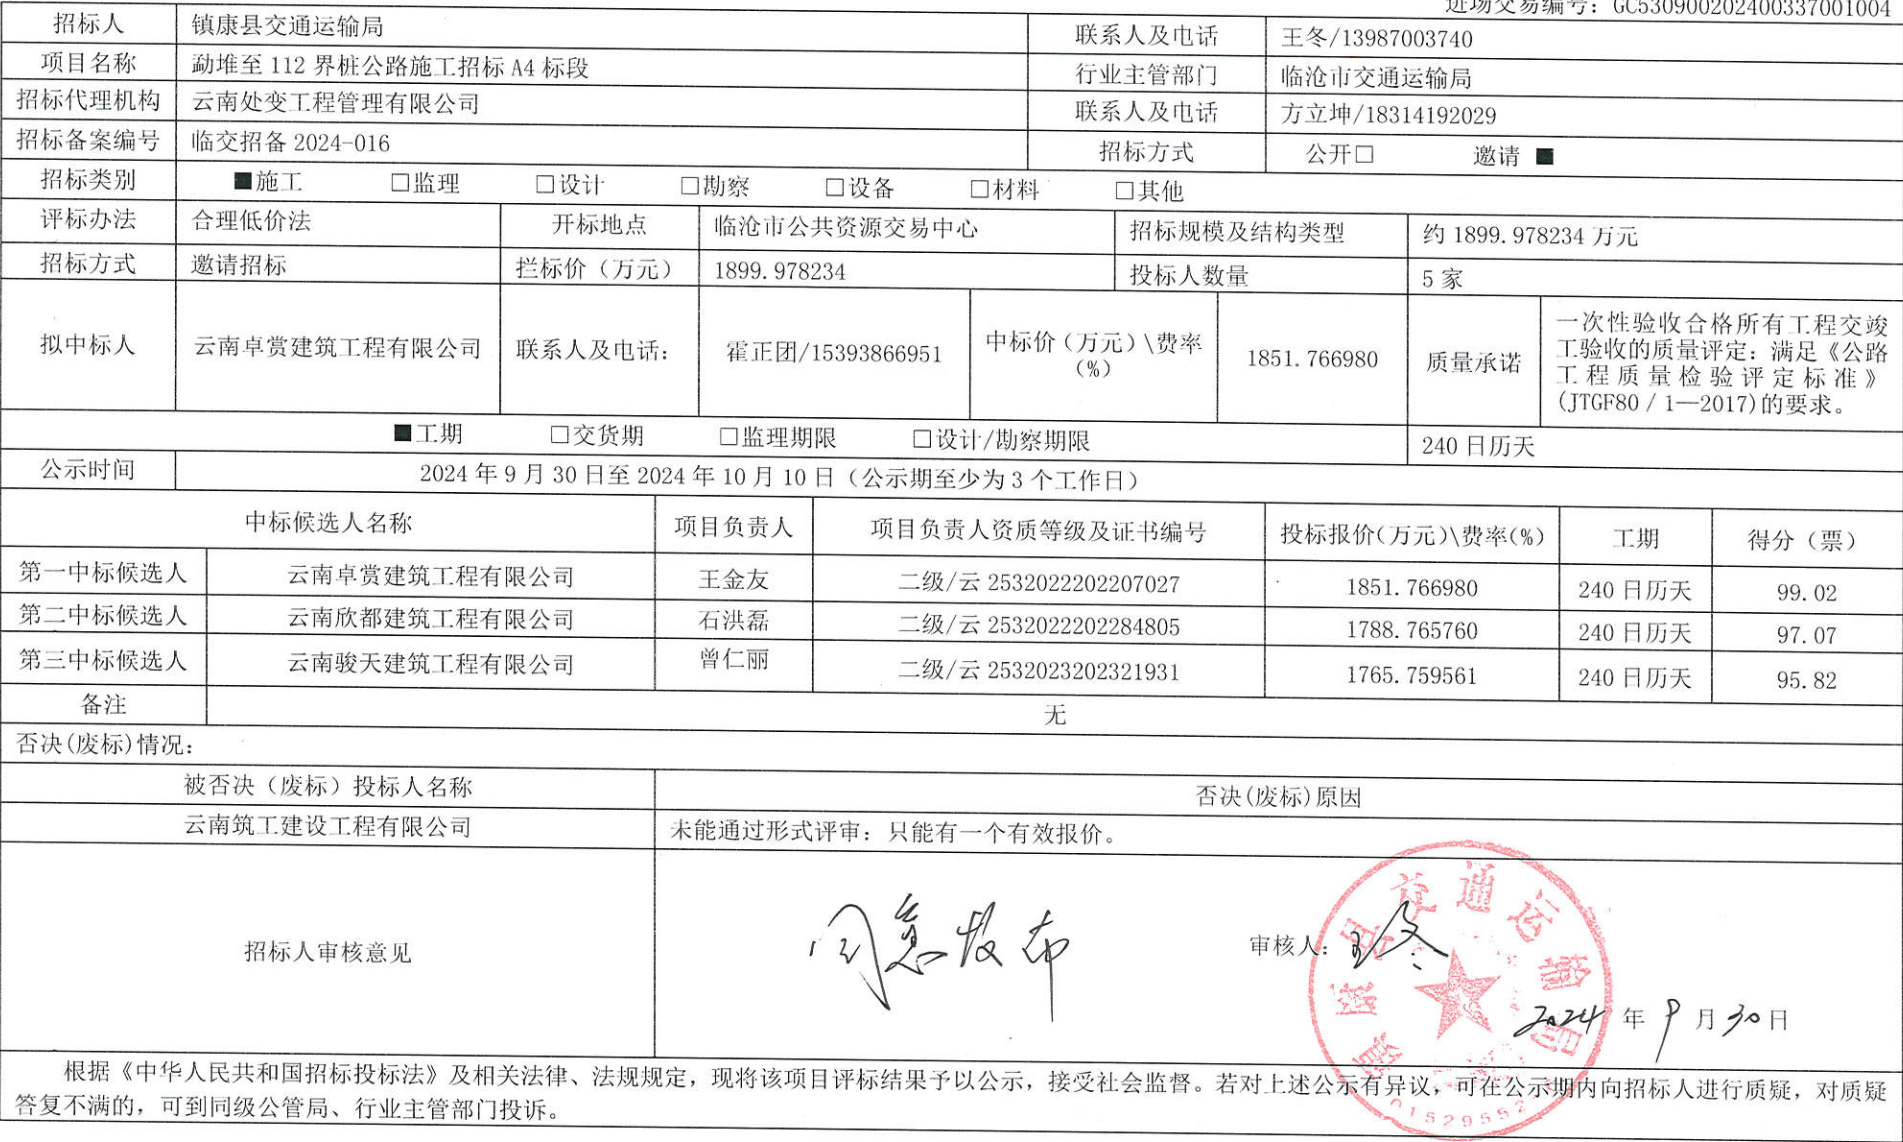 进场交易编号：GC530900202400337001004
招标人 镇康县交通运输局 联系人及电话 王冬/13987003740
项目名称 勐堆至 112 界桩公路施工招标 A4 标段 行业主管部门 临沧市交通运输局
招标代理机构 云南处变工程管理有限公司 联系人及电话 方立坤/18314192029
招标备案编号 临交招备 2024-016 招标方式 公开□ 邀请 ■
招标类别 ■施工 □监理 □设计 □勘察 □设备 □材料 □其他
评标办法 合理低价法 开标地点 临沧市公共资源交易中心 招标规模及结构类型 约 1899.978234 万元
招标方式 邀请招标 拦标价（万元） 1899.978234 投标人数量 5 家
拟中标人 云南卓赏建筑工程有限公司 联系人及电话： 霍正团/15393866951 中标价（万元）\费率
(%)
1851.766980 质量承诺
一次性验收合格所有工程交竣
工验收的质量评定：满足《公路
工程质量检验评定标准》
(JTGF80／1—2017)的要求。
■工期 □交货期 □监理期限 □设计/勘察期限 240 日历天
公示时间 2024 年 9 月 30 日至 2024 年 10 月 10 日（公示期至少为 3 个工作日）
中标候选人名称 项目负责人 项目负责人资质等级及证书编号 投标报价(万元)\费率(%) 工期 得分（票）
第一中标候选人 云南卓赏建筑工程有限公司 王金友 二级/云 2532022202207027 1851.766980 240 日历天 99.02
第二中标候选人 云南欣都建筑工程有限公司 石洪磊 二级/云 2532022202284805 1788.765760 240 日历天 97.07
第三中标候选人 云南骏天建筑工程有限公司 曾仁丽 二级/云 2532023202321931 1765.759561 240 日历天 95.82
备注 无
否决(废标)情况：
被否决（废标）投标人名称 否决(废标)原因
云南筑工建设工程有限公司 未能通过形式评审：只能有一个有效报价。
招标人审核意见 同意发布 审核人：王冬
2024 年 9 月 30 日
镇康县交通运输局
根据《中华人民共和国招标投标法》及相关法律、法规规定，现将该项目评标结果予以公示，接受社会监督。若对上述公示有异议，可在公示期内向招标人进行质疑，对质疑
答复不满的，可到同级公管局、行业主管部门投诉。